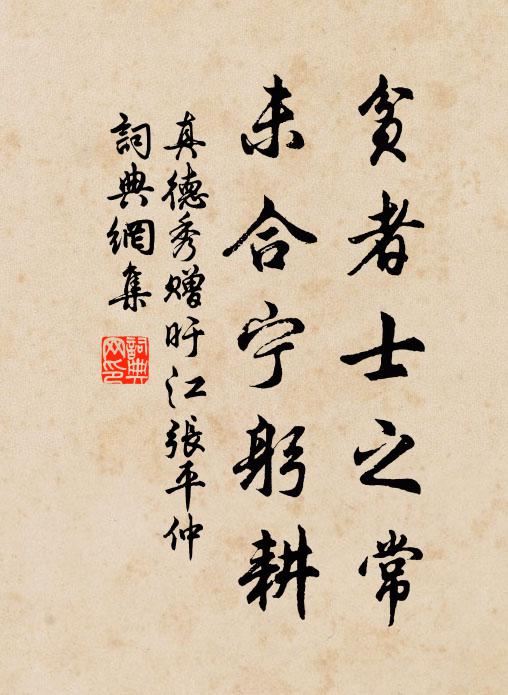 贫者士之常
未合宁躬耕
真德秀赠旴江張平仲
詞典網集
詞典网印